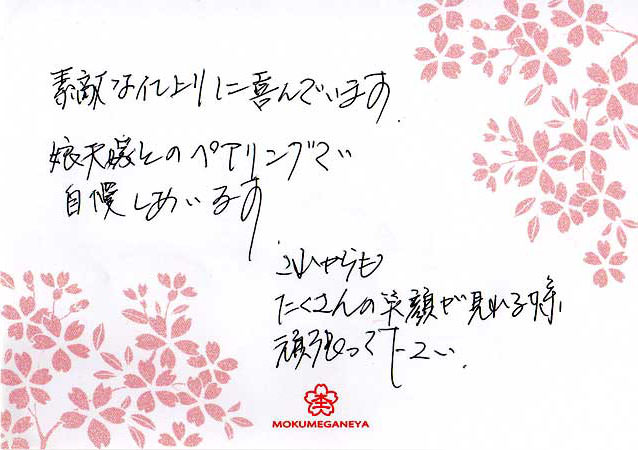 素敵な仕上りに喜んでいます
娘夫嫁とのペアリングでい
自慢しめいるす
これからも
たくさんの笑顔が見れる様、
頑張って下さい。
MOKUMEGANEYA